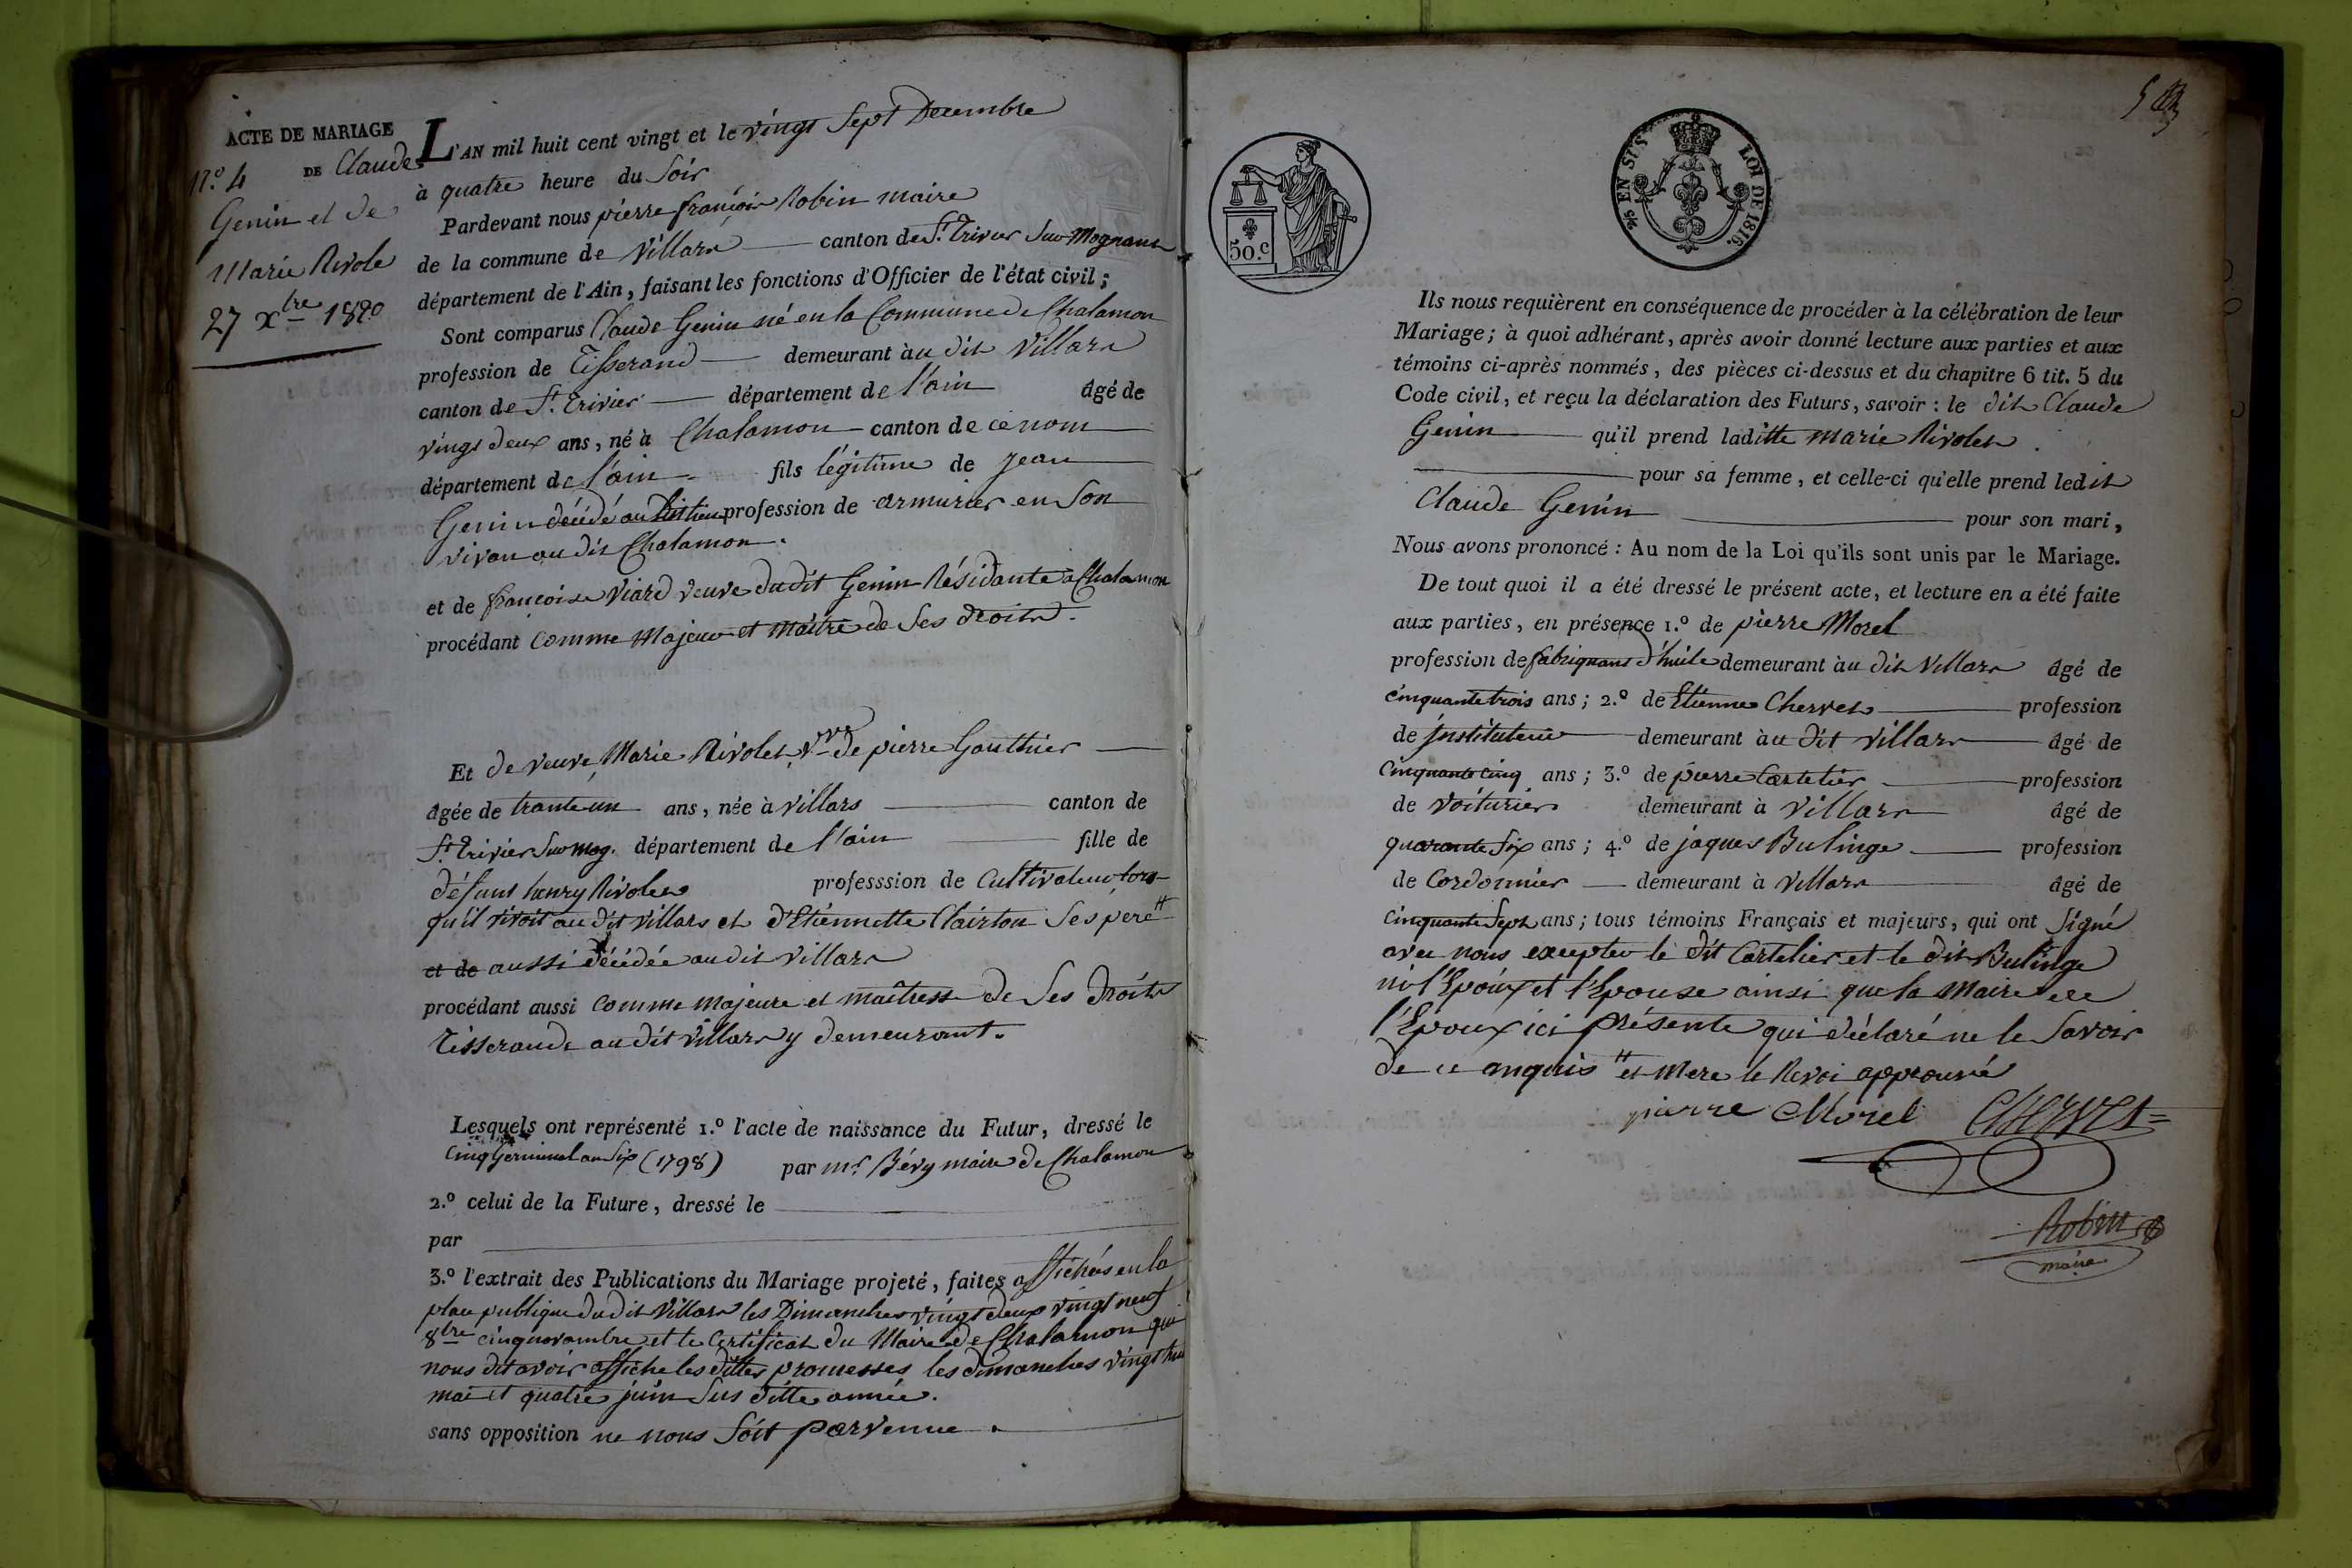 ACTE DE MARIAGE
N.o 4 DE Claude
Genin et de
Marie Rivole
27 Xbre 1820
L'AN mil huit cent vingt et le vingt Sept Decembre
à quatre heure du Soir
Pardevant nous pierre françois Robin maire
de la commune de Villars canton de St. Trivier Sur Mognans
département de l'Ain, faisant les fonctions d'Officier de l'état civil;
Sont comparus Claude Genin né en la Commune de Chalamon
profession de Tisserand demeurant à au dit Villars
canton de St. Trivier département de l'ain âgé de
vingt deux ans, né à Chalamon canton de ce nom
département de l'ain fils légitime de Jean
Genin décédé au dit lieu profession de armurier en Son
vivan au dit Chalamon.
et de françoise Viard veuve du dit Genin Résidante à Chalamon
procédant Comme Majeur et maître de Ses droits.
Et de veuve Marie Rivolet, vve de pierre Gauthier
âgée de trante un ans, née à Villars canton de
St. Trivier Sur Mog. département de l'ain fille de
défunt henry Rivolet professsion de Cultivateur lors
qu'il vivoit au dit villars et d'Etiennette Clairton Ses pere #
et de aussi décédée au dit Villars
procédant aussi Comme majeure et maîtresse de Ses droits
Tisserande au dit Villars y demeurant.
Lesquels ont représenté 1.o l'acte de naissance du Futur, dressé le
Cinq Germinal an Six (1798) par mr. Bévy maire de Chalamon
2.o celui de la Future, dressé le
par
3.o l'extrait des Publications du Mariage projeté, faites affichés en la
place publique du dit Villars les Dimanches vingt deux vingt neuf
8bre cinq novambre et le Certificat du Maire de Chalamon qui
nous dit avoir affiche les dittes promesses les dimanches vingt huit
mai et quatre juin Sus ditte année.
sans opposition ne nous Soit parvenue.
50.c
EN SUS
LOI DE 1816.
Ils nous requièrent en conséquence de procéder à la célébration de leur
Mariage; à quoi adhérant, après avoir donné lecture aux parties et aux
témoins ci-après nommés, des pièces ci-dessus et du chapitre 6 tit. 5 du
Code civil, et reçu la déclaration des Futurs, savoir: le dit Claude
Genin qu'il prend laditte marie Rivolet
pour sa femme, et celle-ci qu'elle prend ledit
Claude Genin pour son mari,
Nous avons prononcé: Au nom de la Loi qu'ils sont unis par le Mariage.
De tout quoi il a été dressé le présent acte, et lecture en a été faite
aux parties, en présence 1.o de pierre Morel
profession de fabriquant d'huile demeurant à au dit Villars âgé de
cinquante trois ans; 2.o de Etienne Chervet profession
de instituteur demeurant à au dit villars âgé de
cinquante cinq ans; 3.o de pierre Cartelier profession
de voiturier demeurant à Villars âgé de
quarante Six ans; 4.o de jaques Bulinge profession
de Cordonnier demeurant à Villars âgé de
cinquante Sept ans; tous témoins Français et majeurs, qui ont Signé
avec nous excepter le dit Cartelier et le dit Bulinge
ni l'Epoux et l'Epouse ainsi que la Maire de
l'Epoux ici présente qui déclaré ne le Savoir
de ce anquis # et Mere le Renvoi approuvé
pierre Morel CHERVET
Robin
maire